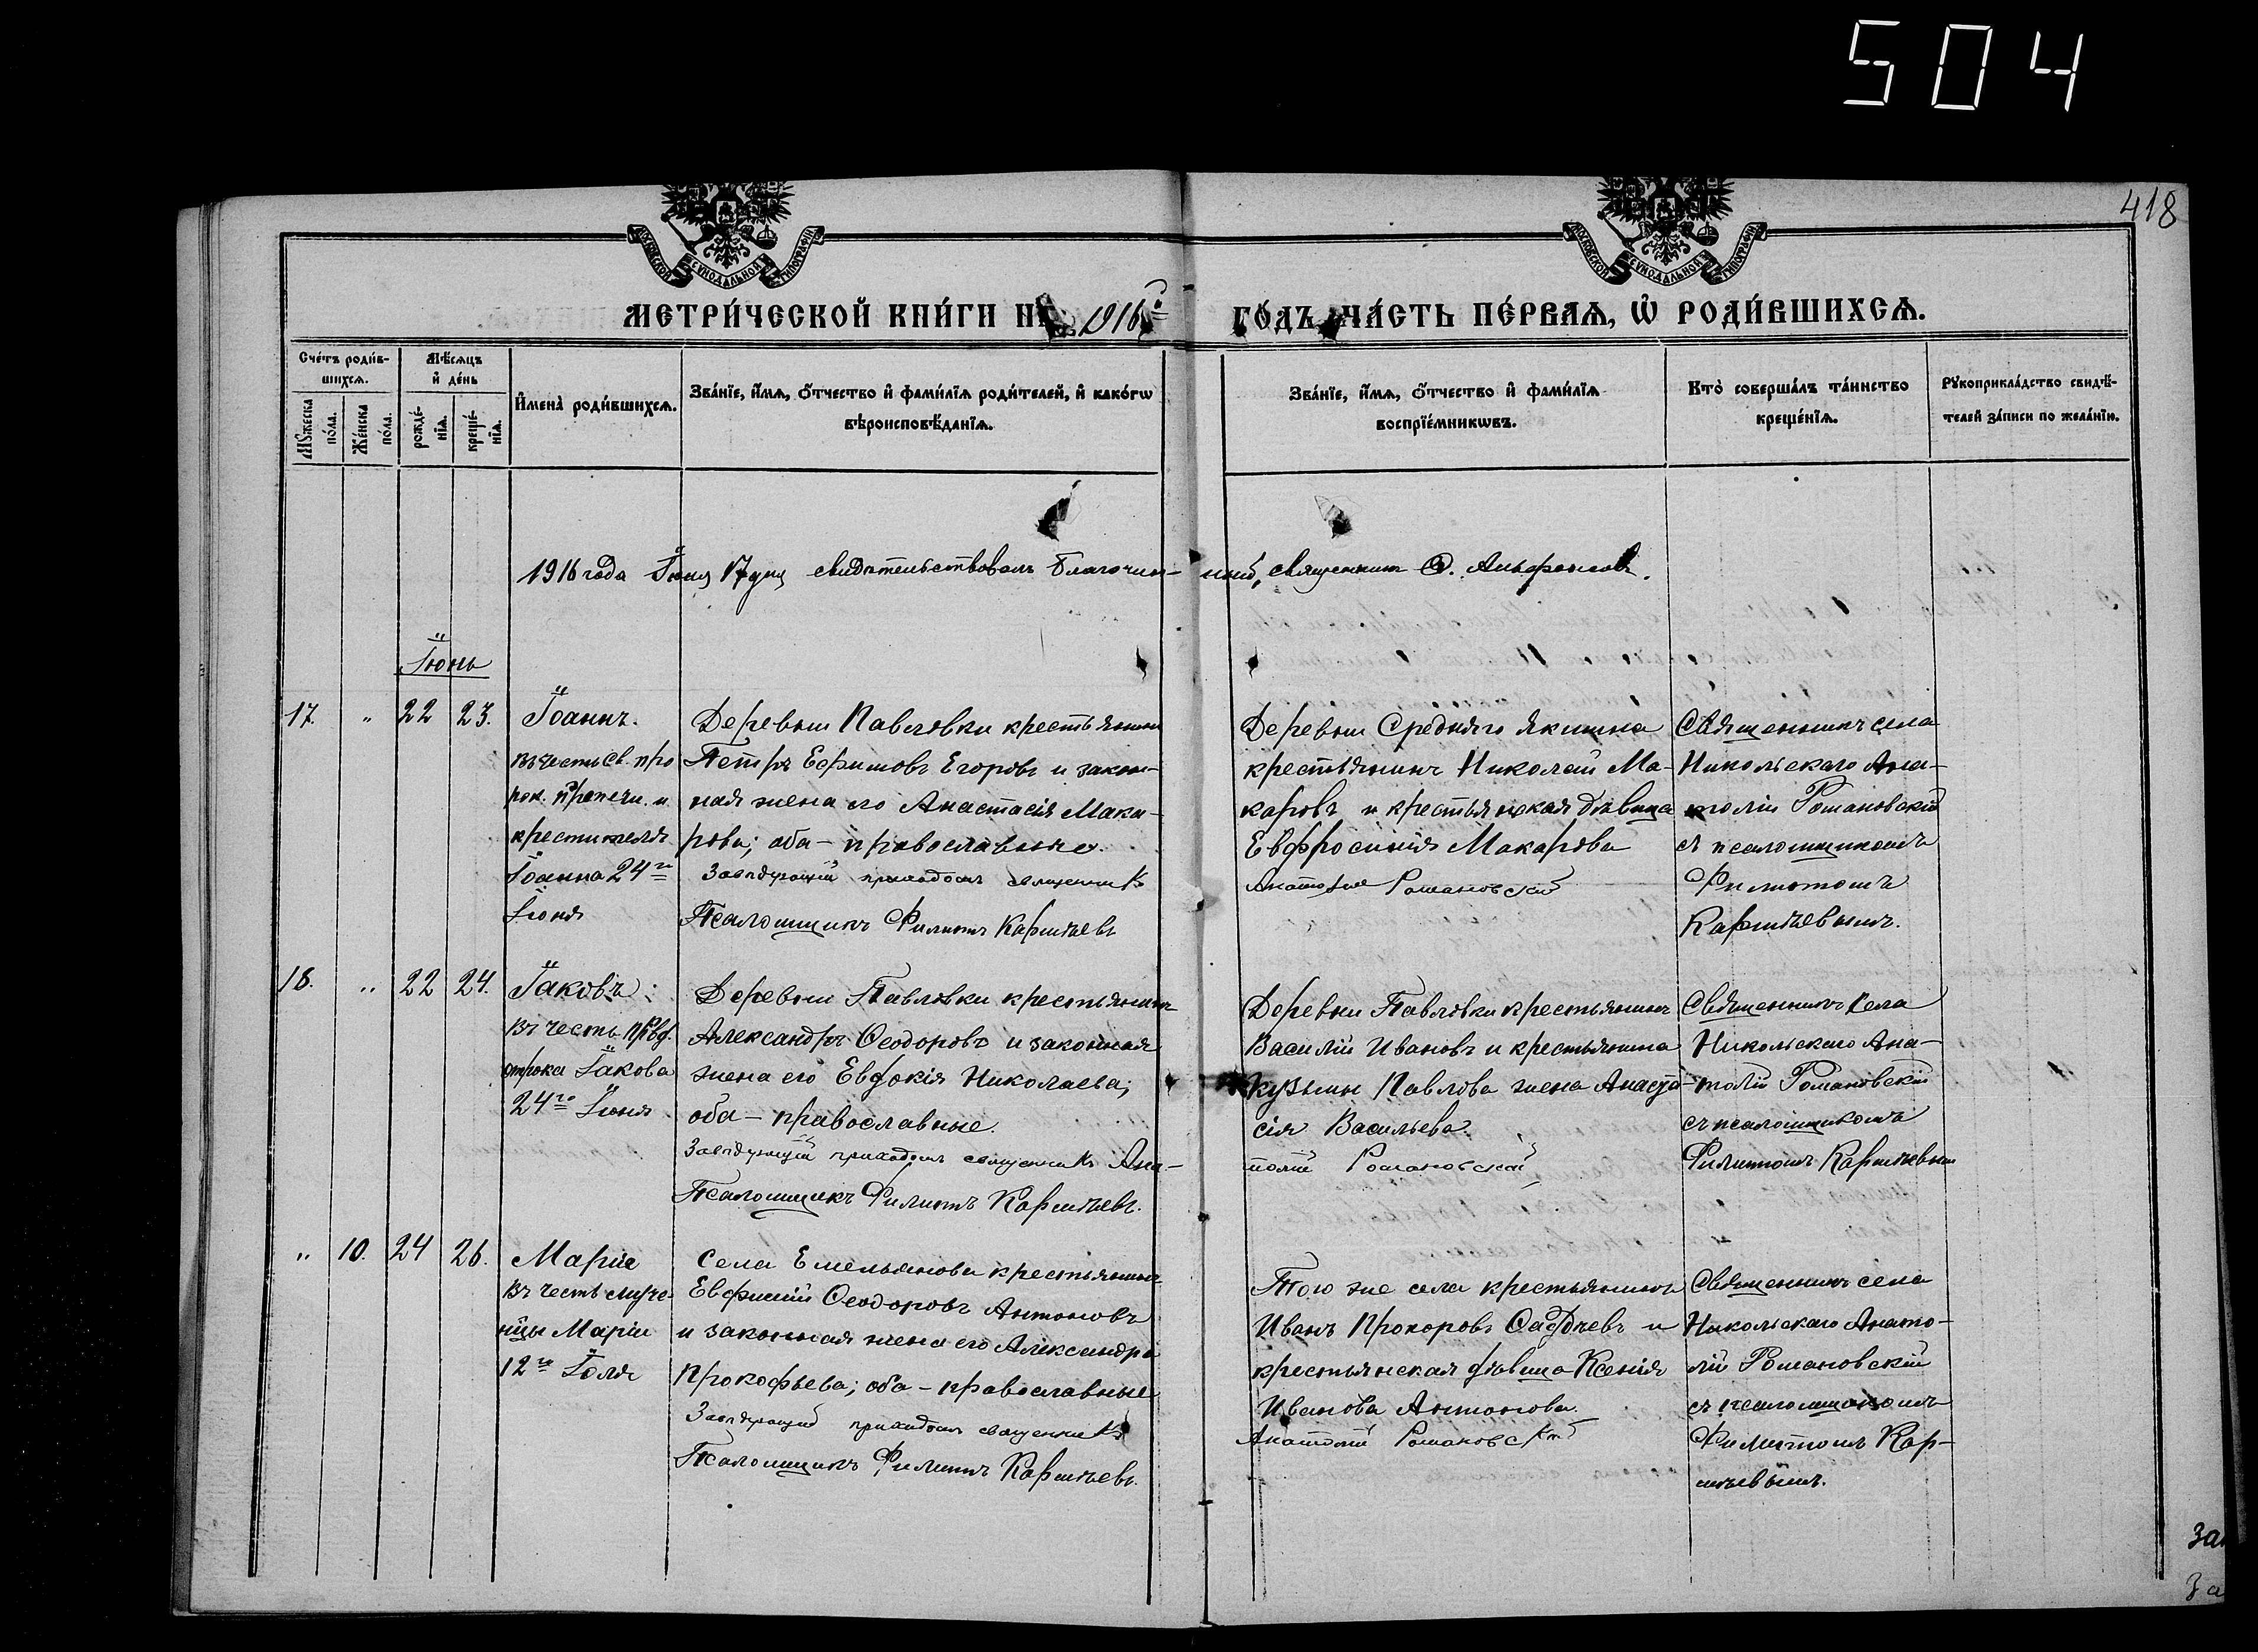 504
418
МОСКОВСКОЙ СУНОДАЛЬНОЙ ТИПОГРАФІИ
МОСКОВСКОЙ СУНОДАЛЬНОЙ ТИПОГРАФІИ
МЕТРИ́ЧЕСКОЙ КНИ́ГИ НА 1916й ГО́ДЪ ЧА́СТЬ ПЕ́РВАѦ, Ѡ҆ РОДИ́ВШИХСѦ.
Сче́тъ роди́в-
шихсѧ.
Мꙋжеска
по́ла.
Же́нска
по́ла.
Мѣ́сѧцъ
и҆ де́нь
рожде́-
нїѧ.
креще́-
нїѧ.
И҆мена̀ роди́вшихсѧ.
Зва́нїе, и҆́мѧ, ѻ҆́тчество и҆ фами́лїѧ роди́телей, и҆ како́гѡ
вѣроисповѣ́данїѧ.
Зва́нїе, и҆́мѧ, ѻ҆́тчество и҆ фами́лїѧ
воспрїе́мникѡвъ.
Кто̀ соверша́лъ та́инство
креще́нїѧ.
Рꙋкоприкла́дство свидѣ́-
телей за́писи по жела́нїю.
1916 года Іюня 17 дня свидѣтельствовалъ Благочин- ный, священникъ Ѳ. Альфонсовъ.
Іюнь
17. " 22 23.
Іоаннъ.
въ честь Св. про
рок. предтечи и
крестителя
Іоанна 24го
Іюня
Деревни Павловки крестьянинъ
Петръ Ефимовъ Егоровъ и закон-
ная жена его Анастасія Мака-
рова; оба - православные.
Завѣдующій приходомъ священникъ
Псаломщикъ Филиппъ Карпѣевъ
Деревни Средняго Якушка
крестьянинъ Николай Ма-
каровъ и крестьянская дѣвица
Евфросинія Макарова
Анатолій Романовскій
Священникъ села
Никольскаго Ана-
толій Романовскій
съ псаломщикомъ
Филиппомъ
Карпѣевымъ.
18. " 22 24.
Іаковъ:
въ честь првд.
отрока Іакова
24го Іюня
Деревни Павловки крестьянинъ
Александръ Ѳеодоровъ и законная
жена его Евдокія Николаева;
оба - православные.
Завѣдующій приходомъ священникъ Ана-
Псаломщикъ Филиппъ Карпѣевъ.
Деревни Павловки крестьянинъ
Василій Ивановъ и крестьянина
Кузьмы Павлова жена Анаста-
сія Васильева.
толій Романовскій
Священникъ села
Никольскаго Ана-
толій Романовскій
съ псаломщикомъ
Филиппомъ Карпѣевымъ
" 10. 24 26.
Марія
въ честь муче-
ницы Маріи
12го Іюля
Села Емельянова крестьянинъ
Евфимій Ѳеодоровъ Антоновъ
и законная жена его Александра
Прокофьева; оба - православные
Завѣдующій приходомъ священникъ
Псаломщикъ Филиппъ Карпѣевъ.
Того же села крестьянинъ
Иванъ Прохоровъ Ѳаддѣевъ и
крестьянская дѣвица Ксенія
Иванова Антонова.
Анатолій Романовскій
Священникъ села
Никольскаго Анато-
лій Романовскій
съ псаломщикомъ
Филиппомъ Кар-
пѣевымъ.
за
за